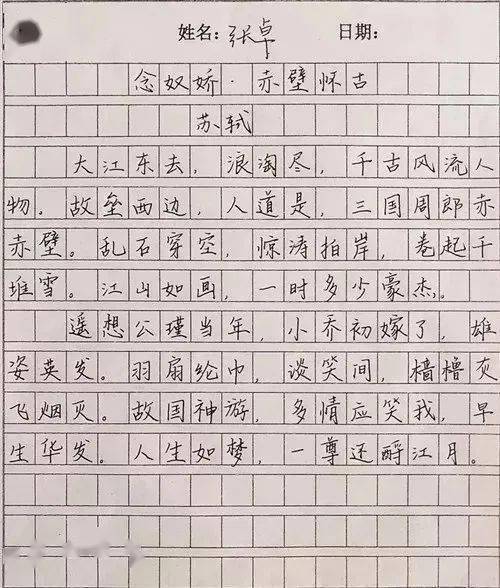 姓名：张卓 日期：
念奴娇·赤壁怀古
苏轼
大江东去，浪淘尽，千古风流人
物。故垒西边，人道是，三国周郎赤
赤壁。乱石穿空，惊涛拍岸，卷起千
堆雪。江山如画，一时多少豪杰。
遥想公瑾当年，小乔初嫁了，雄
姿英发。羽扇纶巾，谈笑间，樯橹灰
飞烟灭。故国神游，多情应笑我，早
生华发。人生如梦，一尊还酹江月。